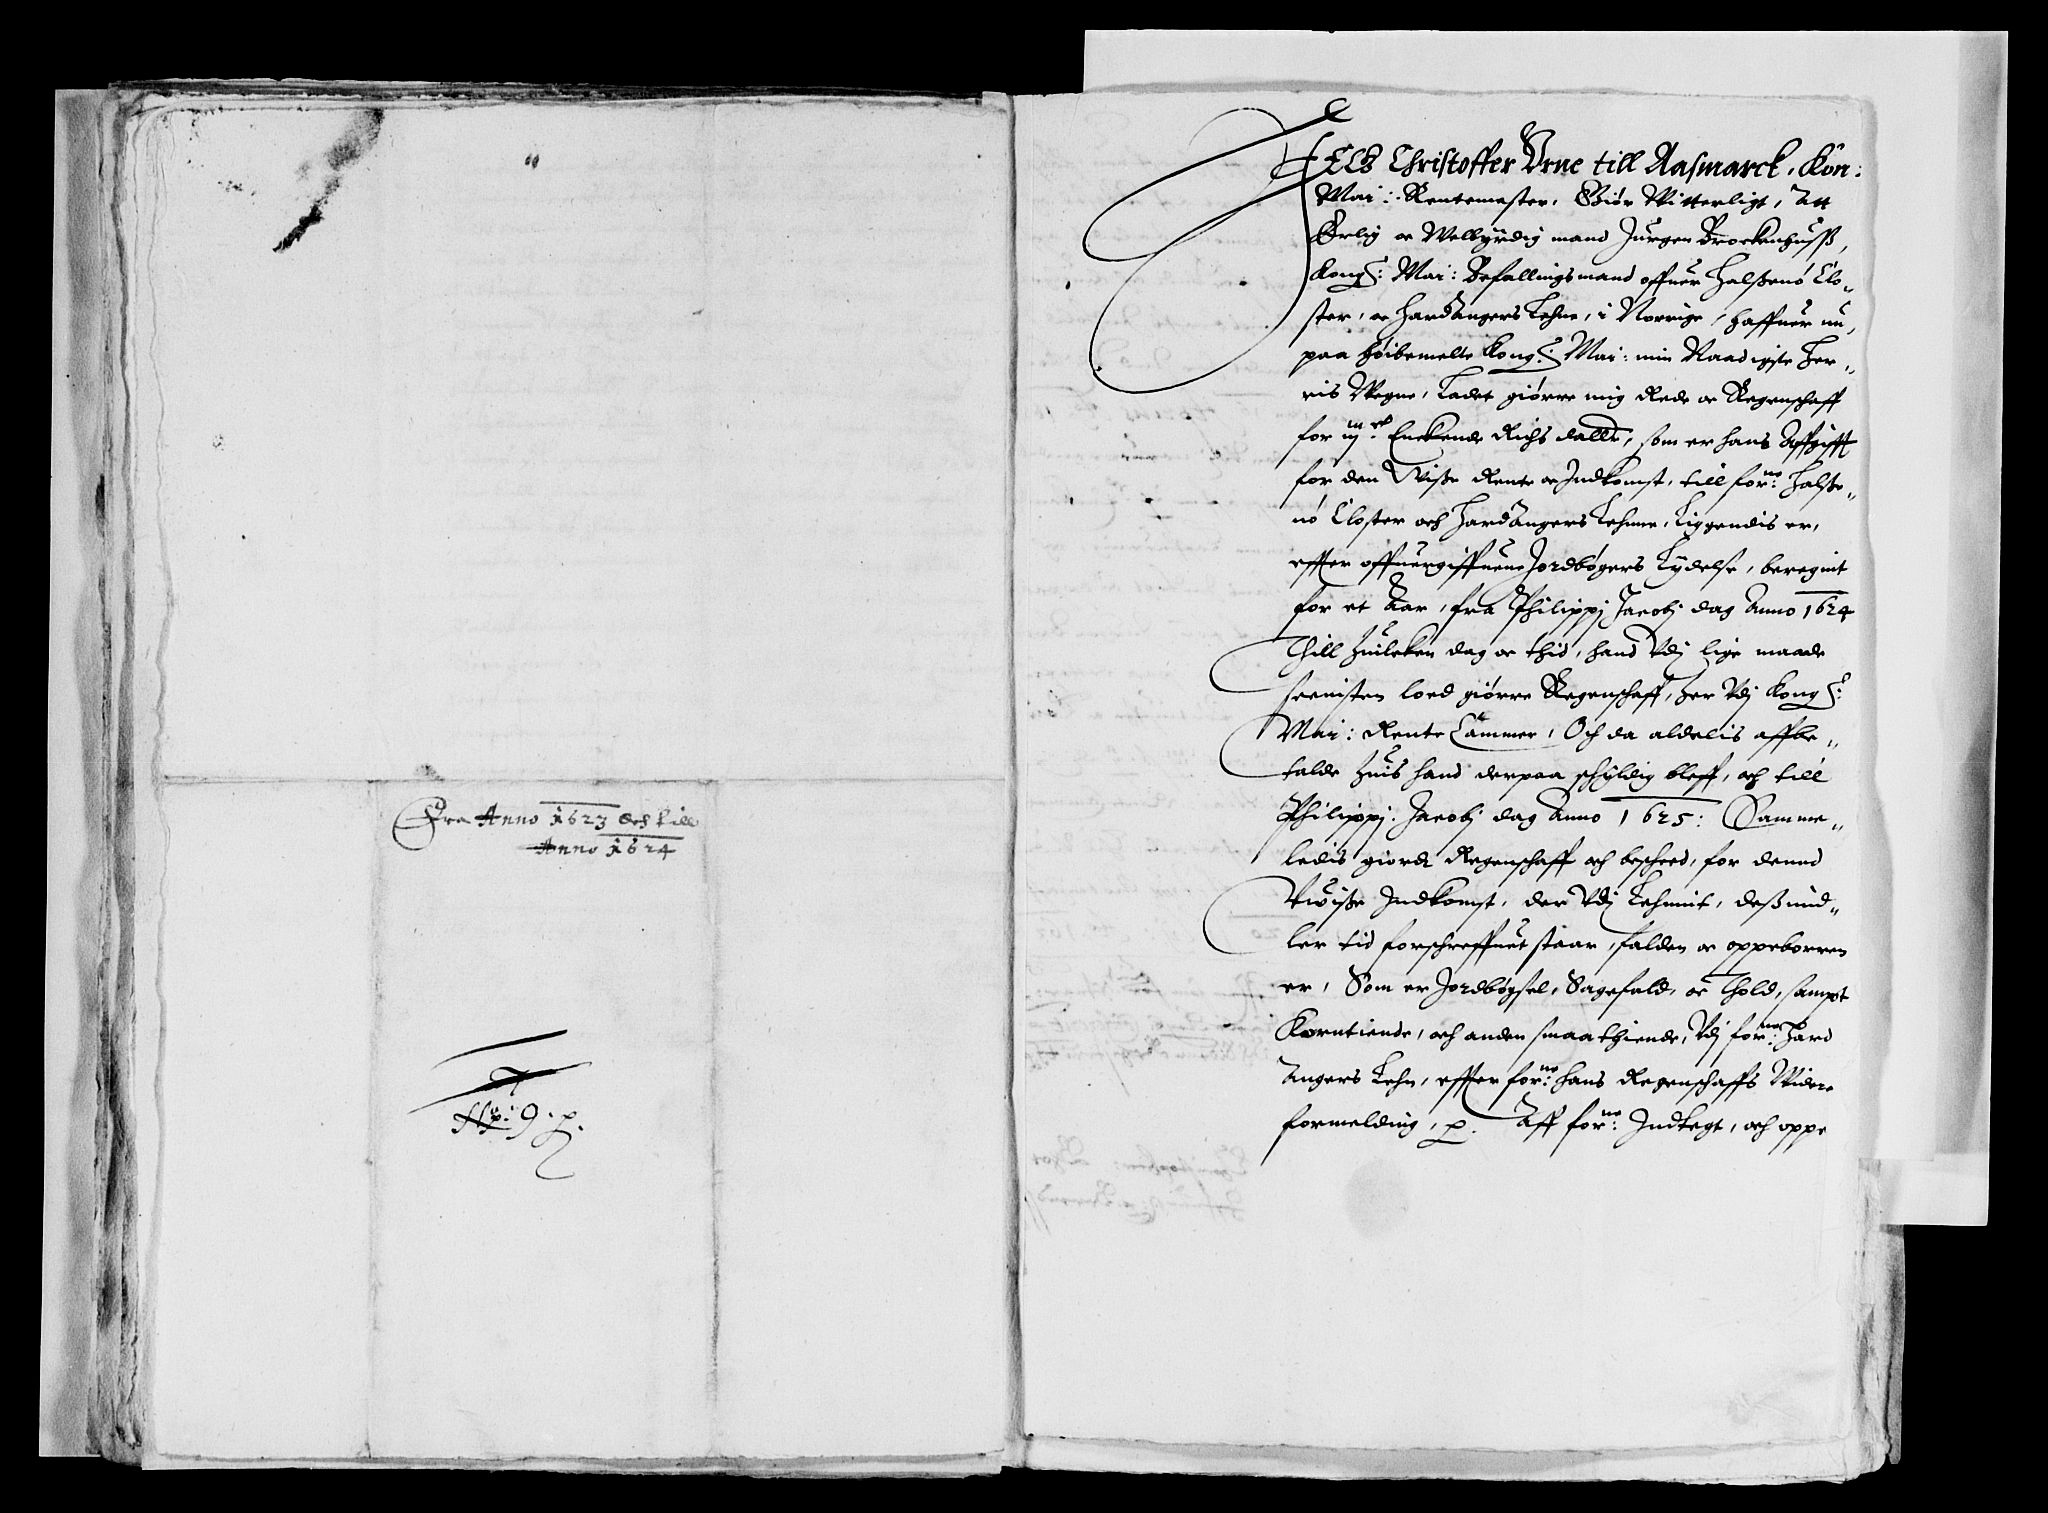 Fra Anno 1623 Och till
Anno 1624
N: 9. p.
JECG Christoffer Vrne till Aasmarck, Kön:
Mai: Rentemester, Giör Witterligt, Att
Erlig oc Welbyrdig mand Jürgen Brockenhuss,
Kong: Mai: Befallingsmand offuer Halssenö Clo„
ster, oc Hardangers Lehne, i Norrige, haffuer nu,
paa höibemelte Kong: Mai: min Naadigste Her„
ris Wegne, Ladet giörre mig Rede oc Regenschaff
for Enckende Richs dallr, som er hans Affgifft
for den Wisse Rente oc Indkomst, till forne: Halsse„
nö Closter och Hardangers Lehnne, Liggendis er,
effter offuergiffuene Jordbögers Lydelse, beregnit
for et Aar, fra Philippj Jacobj dag Anno 1624
Thill huilcken dag oc thid, hand Vdj lige maade
seenisten loed giörre Regenschaff, her Vdj Kong:
Mai: Rente Cammer, Och da aldelis affbe„
talde huis hand derpaa schyldig bleff, och till
Philippj: Jacobj dag Anno 1625: Samme„
ledis giordt Regenschaff och bescheed, for dend
Vwisse Indkomst, der Vdj Lehnnit, dess mid„
ler tid forschreffuet staar, falden oc oppeborren
er, Som er Jordbögsel, Sagefald, oc Thold, sampt
Korntiende, och anden smaa thiende, Vdj forne: Hard
angers Lehn, effter forne: hans Regenschaffs Widere
formelding, p. Aff forne: Indtegt, och oppe